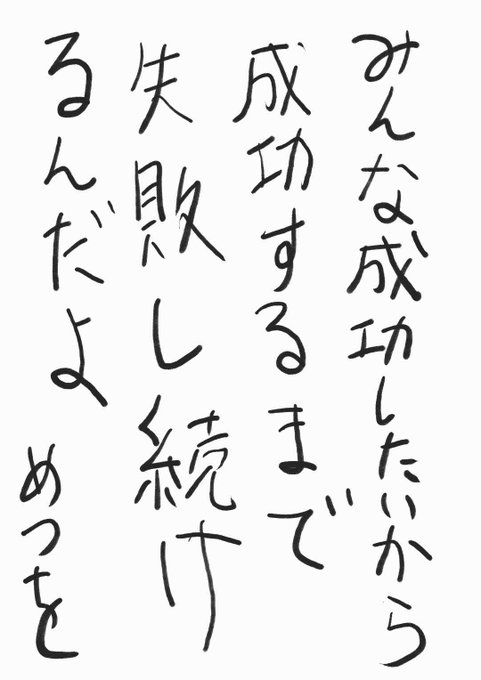 みんな成功したいから
成功するまで
失敗し続け
るんだよ
めつを